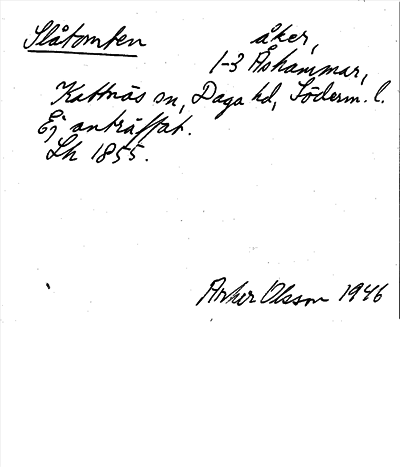 Slåtomten åker,
1-3 Åshammar,
Kattnäs sn, Daga hd, Söderm. l.
Ej anträffat.
Lh 1855.
Anker Olsson 1946